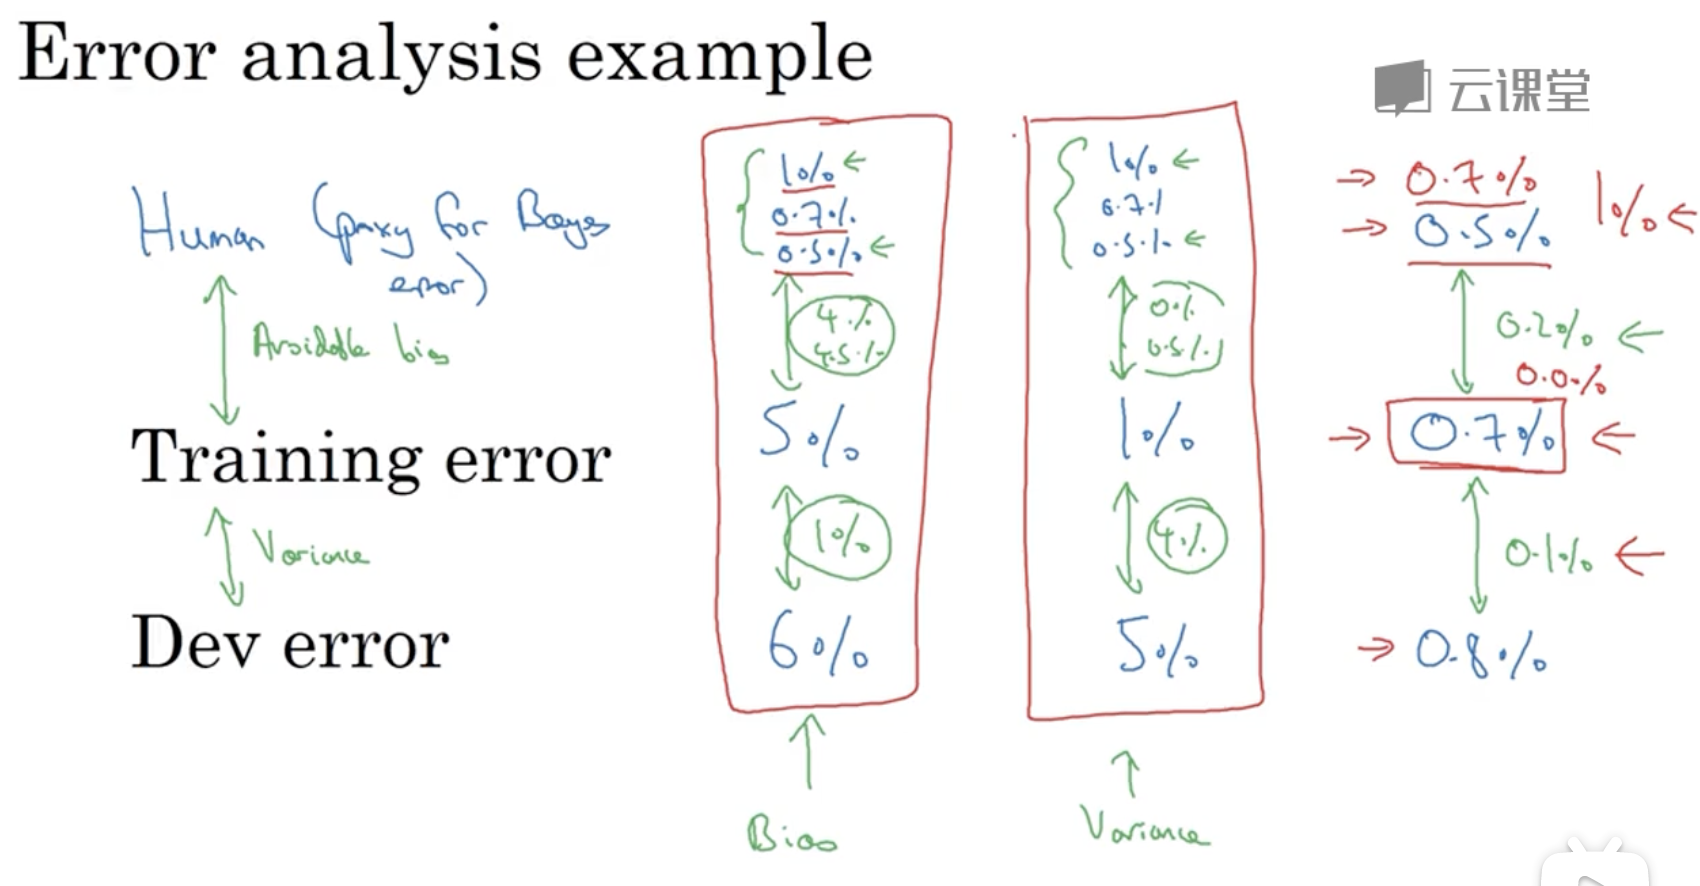 Error analysis example
云课堂
Human (proxy for Bayes
error)
Avoidable bias
Training error
Variance
Dev error
1%
0.7%
0.5%
4%
4.5%
5%
1%
6%
Bias
1%
0.7%
0.5%
0%
0.5%
1%
4%
5%
Variance
0.7%
0.5%
1%
0.2%
0.0%
0.7%
0.1%
0.8%